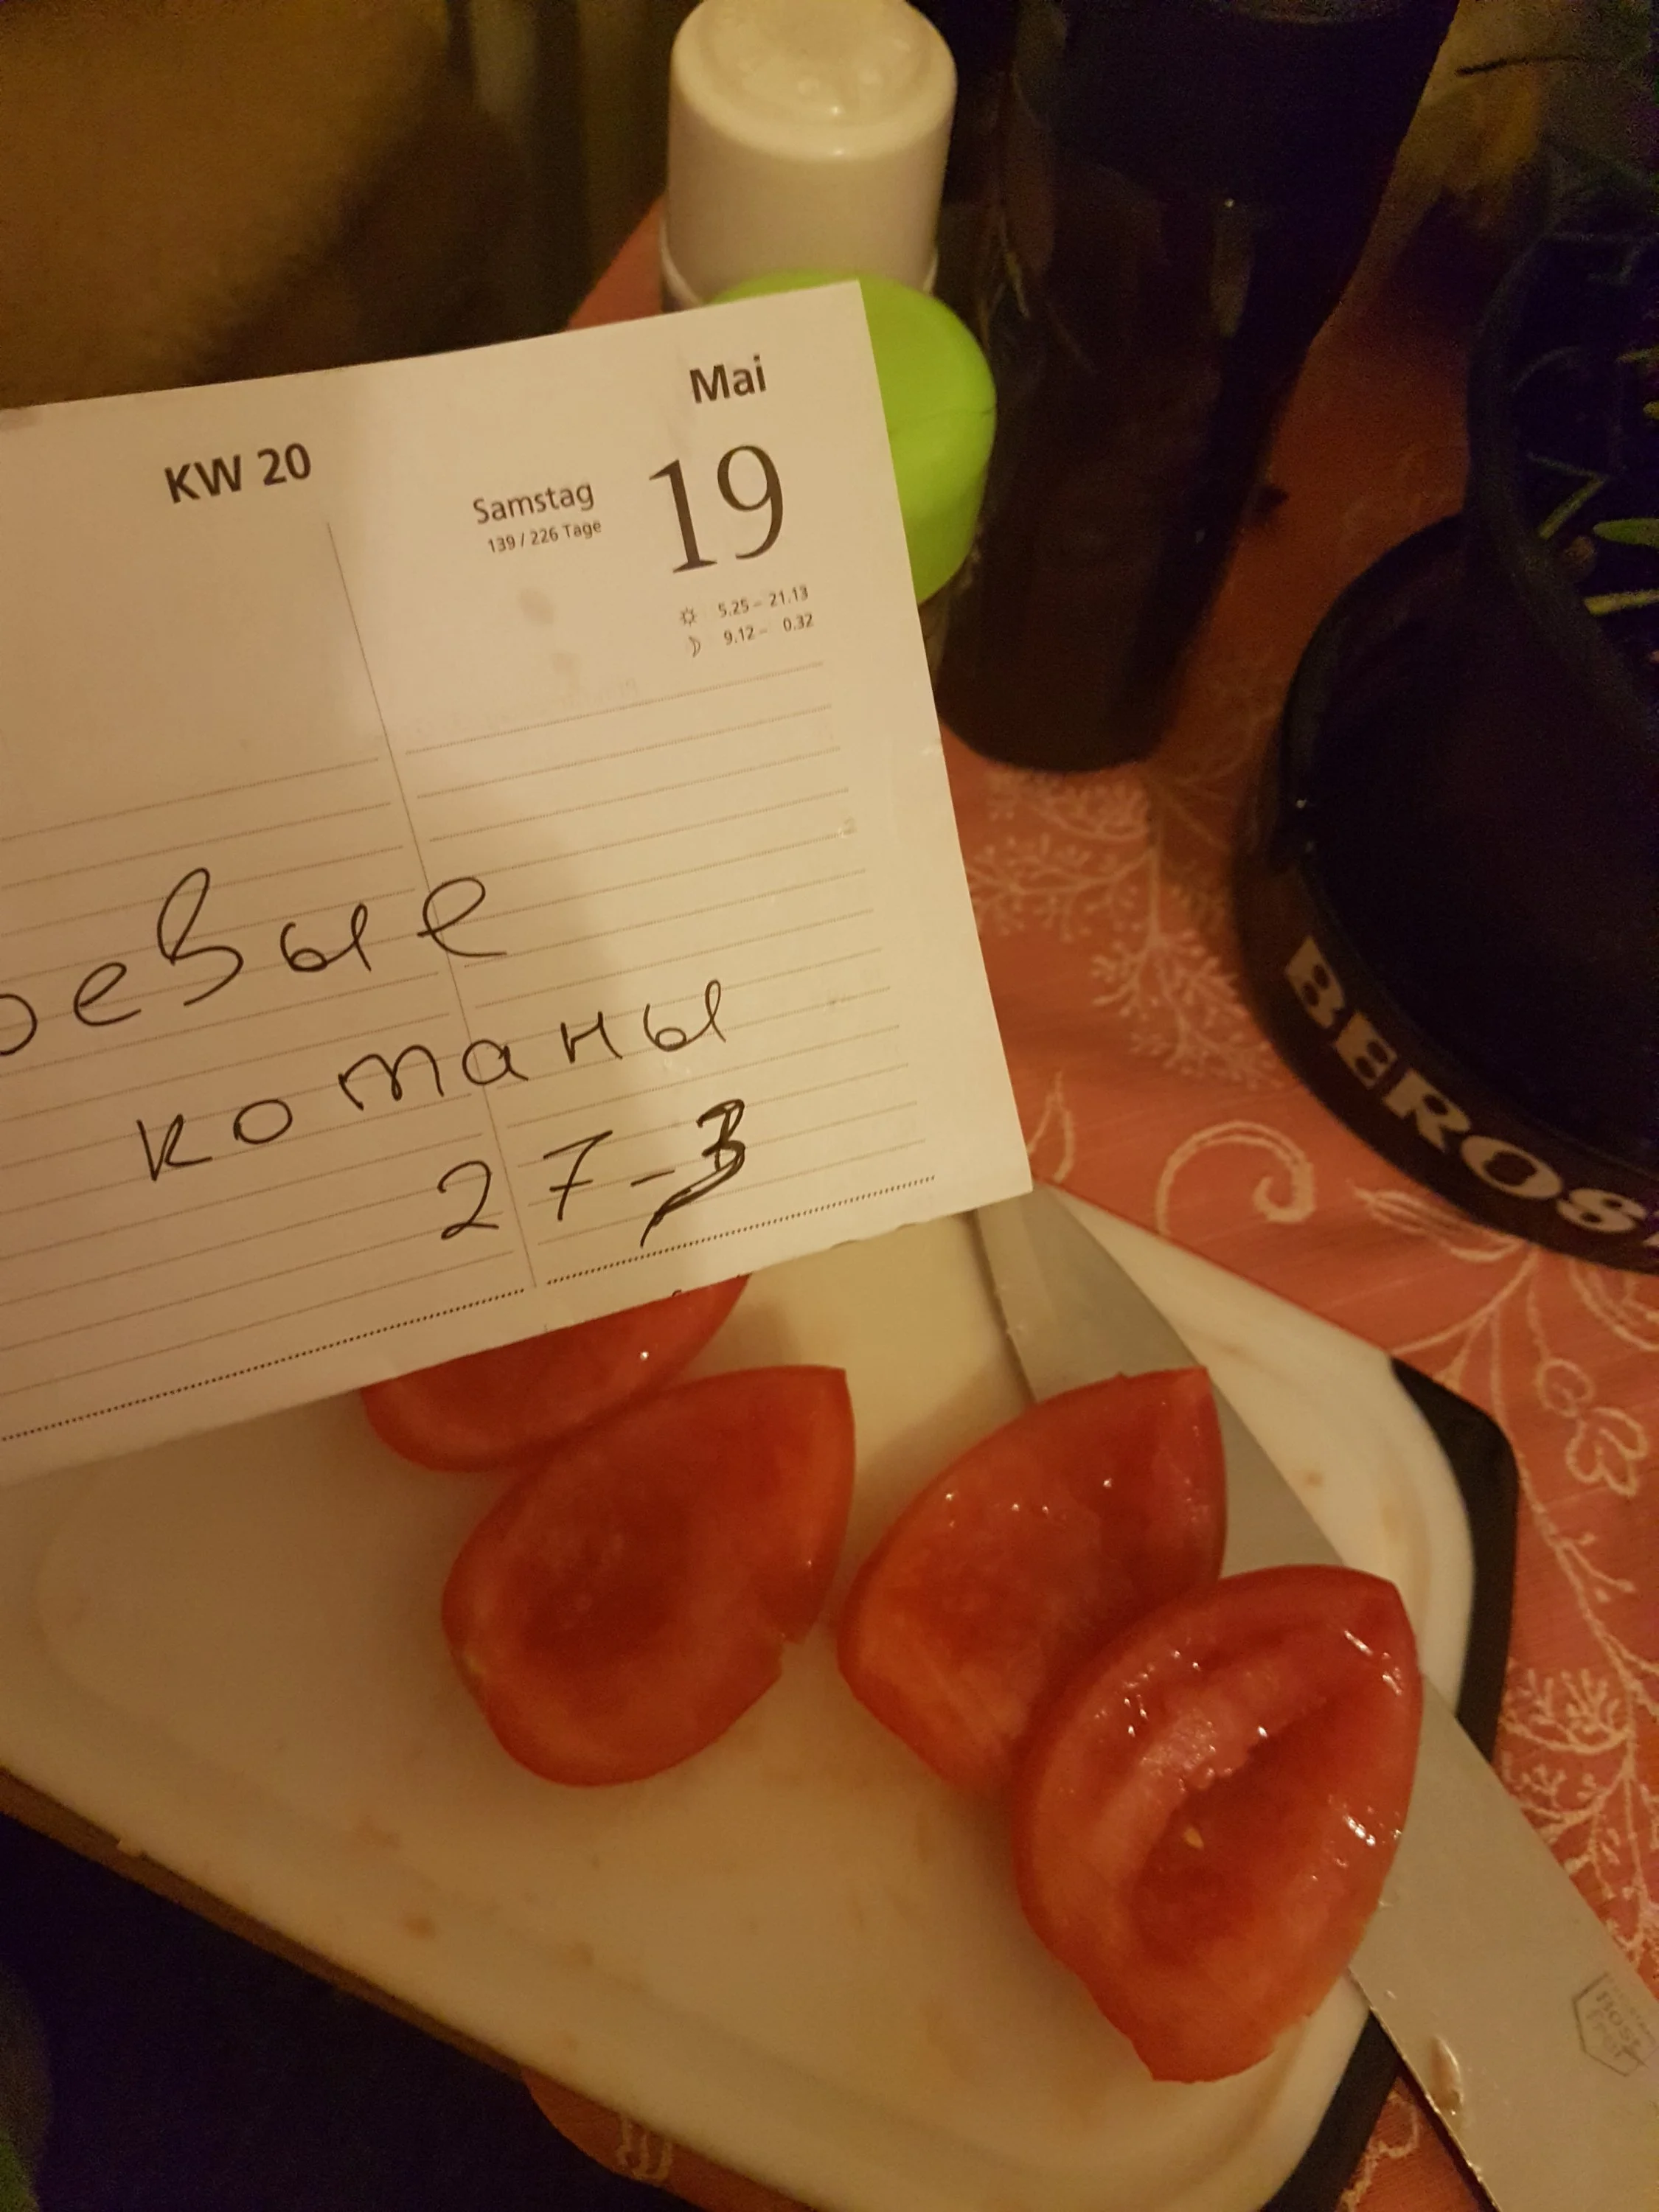 Mai
KW 20
Samstag 19
139 / 226 Tage
5.25 – 21.13
9.12 – 0.32
оевые
команы
27-3
BEROS